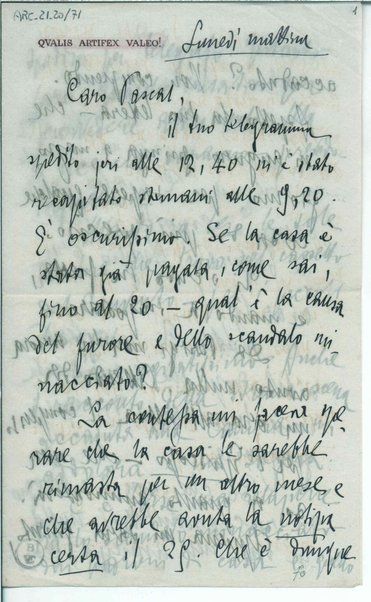 ARC.21.20/71
1
QVALIS ARTIFEX VALEO!
Lunedì mattina
Caro Pascal,
il tuo telegramma
spedito ieri alle 12,40 mi è stato
recapitato stamani alle 9,20.
È oscurissimo. Se la casa è
stata già pagata, come sai,
fino al 20, – qual'è la causa
del furore e dello scandalo mi
nacciato?
La contessa mi fece spe
rare che la casa le sarebbe
rimasta per un altro mese e
che avrebbe avuta la notizia
certa il 25. Che è dunque